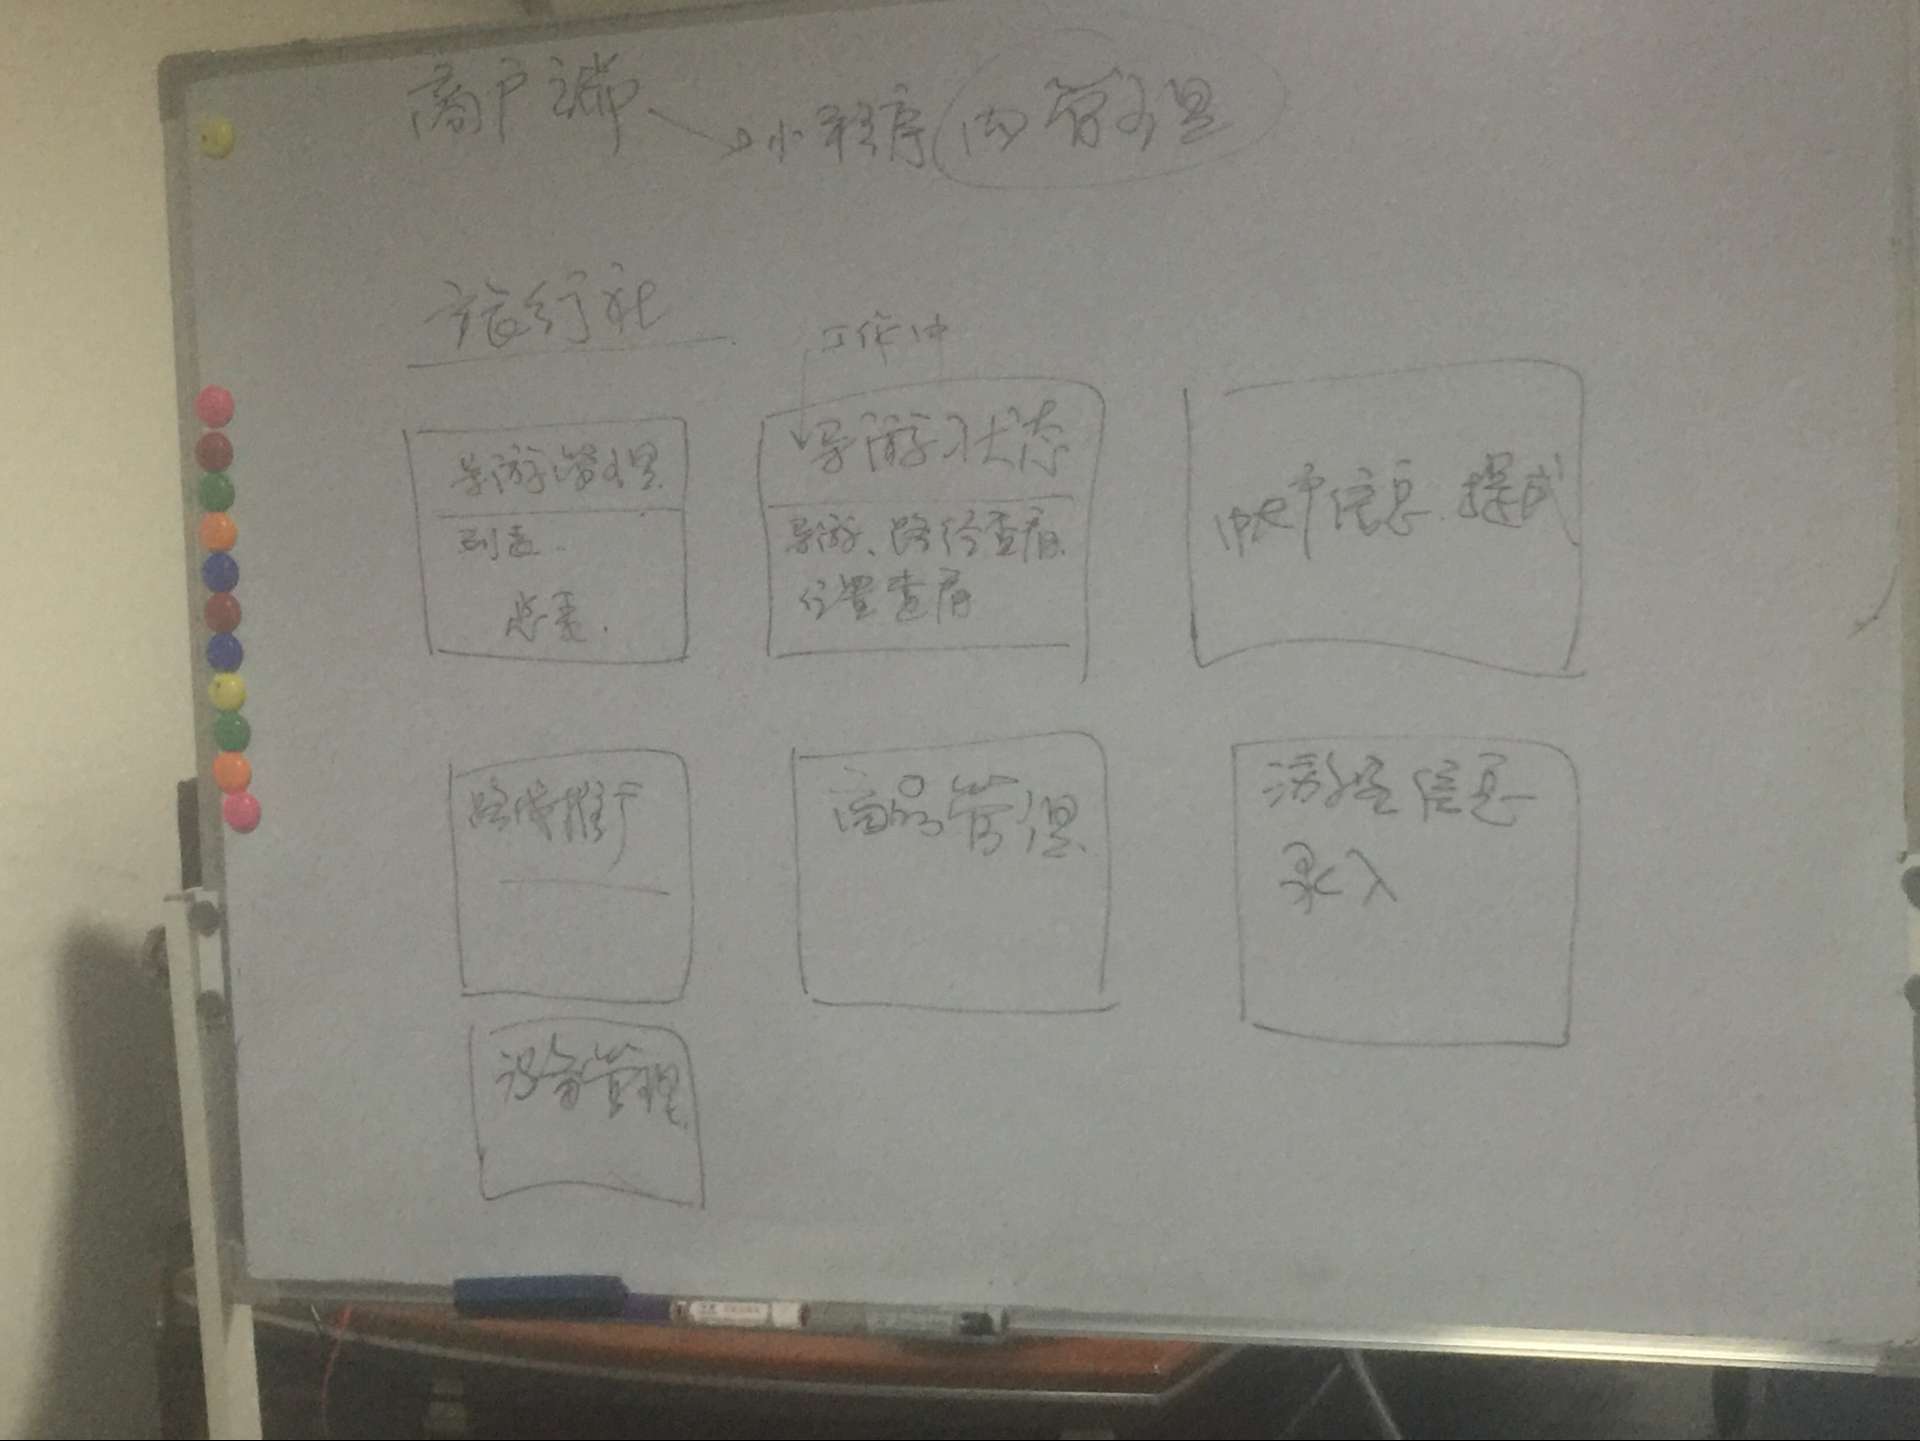 商户端 → 小程序内管理
旅行社
工作中
导游管理
列表.
导游状态
导游、路径查看
位置查看
信息提
路线推广
商品管理
游客信息
录入
设备管理